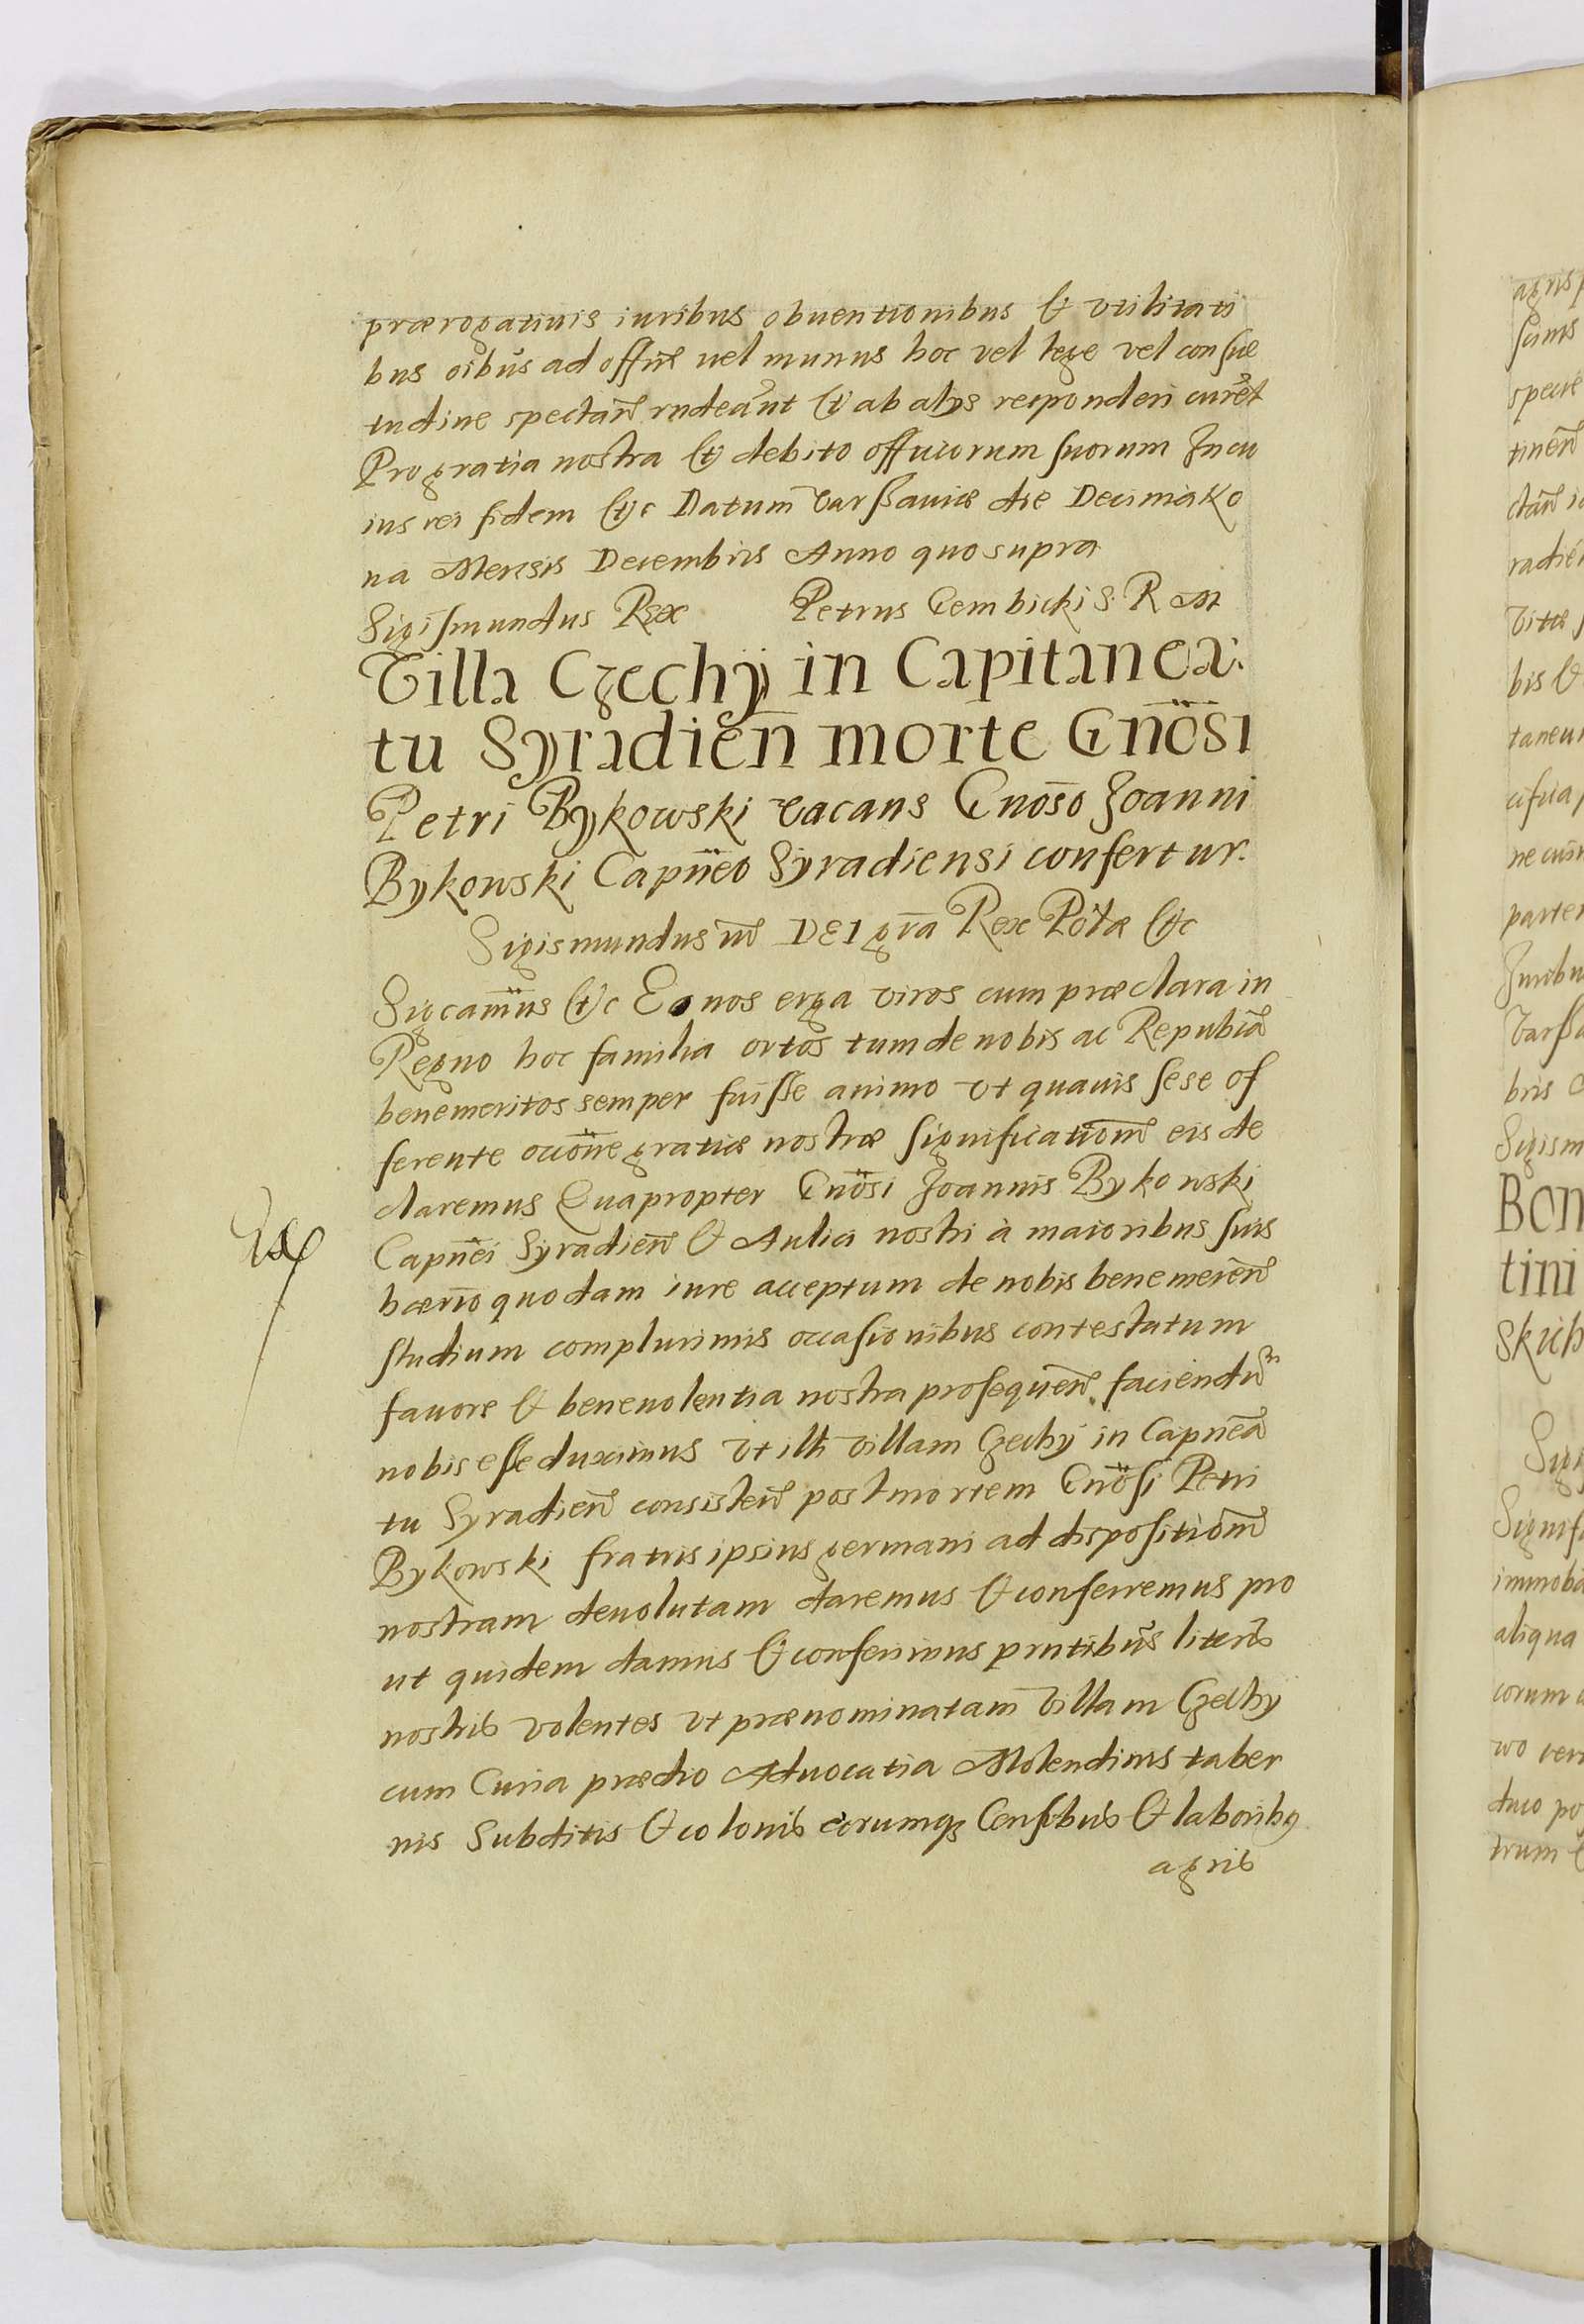 prærogatiuis iuribus obuentionibus & vtilitati
bus oibus ad offm̃ uel munus hoc vel lege vel consue
tudine spectañ rndeant & ab alijs responderi curet
Pro gratia nostra & debito officiorum suorum In cu
ius rei fidem &c Datum Varssauiæ die Decima No
na Mensis Decembris Anno quo supra
Sigismundus Rex Petrus Gembicki S. R M
Villa Czechÿ in Capitanea
tu Syradieñ morte Gnõsi
Petri Bykowski vacans Gnõso Joanni
Bykowski Capñeo Syradiensi confertur.
Sigismundus iii DEI gr̃a Rex Poł̃æ &c
Sigcam̃us &c Eo nos erga viros cum præclara in
Regno hoc familia ortos tum de nobis ac Republĩa
benemeritos semper fuisse animo vt quauis sese of
ferente occõne gratiæ nostræ significationẽ eis de
claremus Quapropter Gnõsi Joannis Bykowski
Capñei Syradieñ & Aulici nostri à maioribus suis
hærio quodam iure acceptum de nobis benemereñ
studium complurimis occasionibus contestatum
fauore & beneuolentia nostra prosequeñ. faciendum
nobis esse duximus vt illi villam Czechÿ in Capñea
tu Syradieñ consisteñ post mortem Gnõsi Petri
Bykowski fratris ipsius germani ad dispositionẽ
nostram deuolutam daremus & conferremus pro
ut quidem damus & conferimus pntibus literis
nostris volentes vt prænominatam villam Czechy
cum Curia prædio Aduocatia Molendinis taber
nis Subditis & colonis eorumq3 Censibus & laborib9
agris
agris
sumis
specie
tineñ
ctañ
Vitæ
bis &
taneu
ne
parte
Juribu
Varssa
bris
Sigism
Bon
tini
skich
Sigi
Signifi
immobi
aliqua
corum
wo
duo po
trum